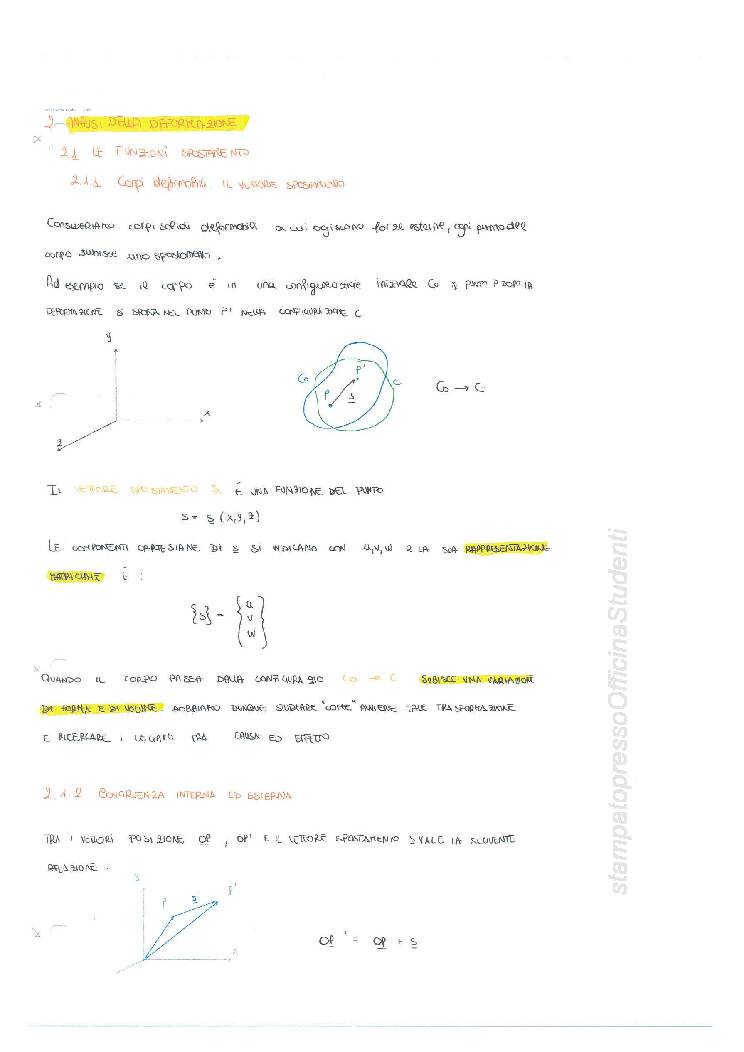 2 ANALISI DELLA DEFORMAZIONE
2.1 LE FUNZIONI SPOSTAMENTO
2.1.1 Corpi deformabili IL VETTORE SPOSTAMENTO
CONSIDERIAMO corpi solidi deformabili a cui agiscono forze esterne, ogni punto del
corpo subisce uno spostamento.
Ad esempio se il corpo è in una configurazione iniziale C0 il punto P DOPO LA
DEFORMAZIONE SI SPOSTA NEL PUNTO P' NELLA CONFIGURAZIONE C
y
x
z
C0
P
P'
s
C
C0 → C
IL VETTORE SPOSTAMENTO S È UNA FUNZIONE DEL PUNTO
s = s (x,y,z)
LE COMPONENTI CARTESIANE DI s SI INDICANO CON u,v,w E LA SUA RAPPRESENTAZIONE
MATRICIALE È :
{s} = {u
v
w}
QUANDO IL CORPO PASSA DALLA CONFIGURAZIO C0 → C SUBISCE UNA VARIAZIONE
DI FORMA E DI VOLUME. DOBBIAMO DUNQUE STUDIARE "COME" AVVIENE TALE TRASFORMAZIONE
E RICERCARE I LEGAMI TRA CAUSA ED EFFETTO
2.1.2 CONGRUENZA INTERNA ED ESTERNA
TRA I VETTORI POSIZIONE OP , OP' E IL VETTORE SPOSTAMENTO S VALE LA SEGUENTE
RELAZIONE :
P
s
P'
OP' = OP + s
stampatopressoOfficinaStudenti